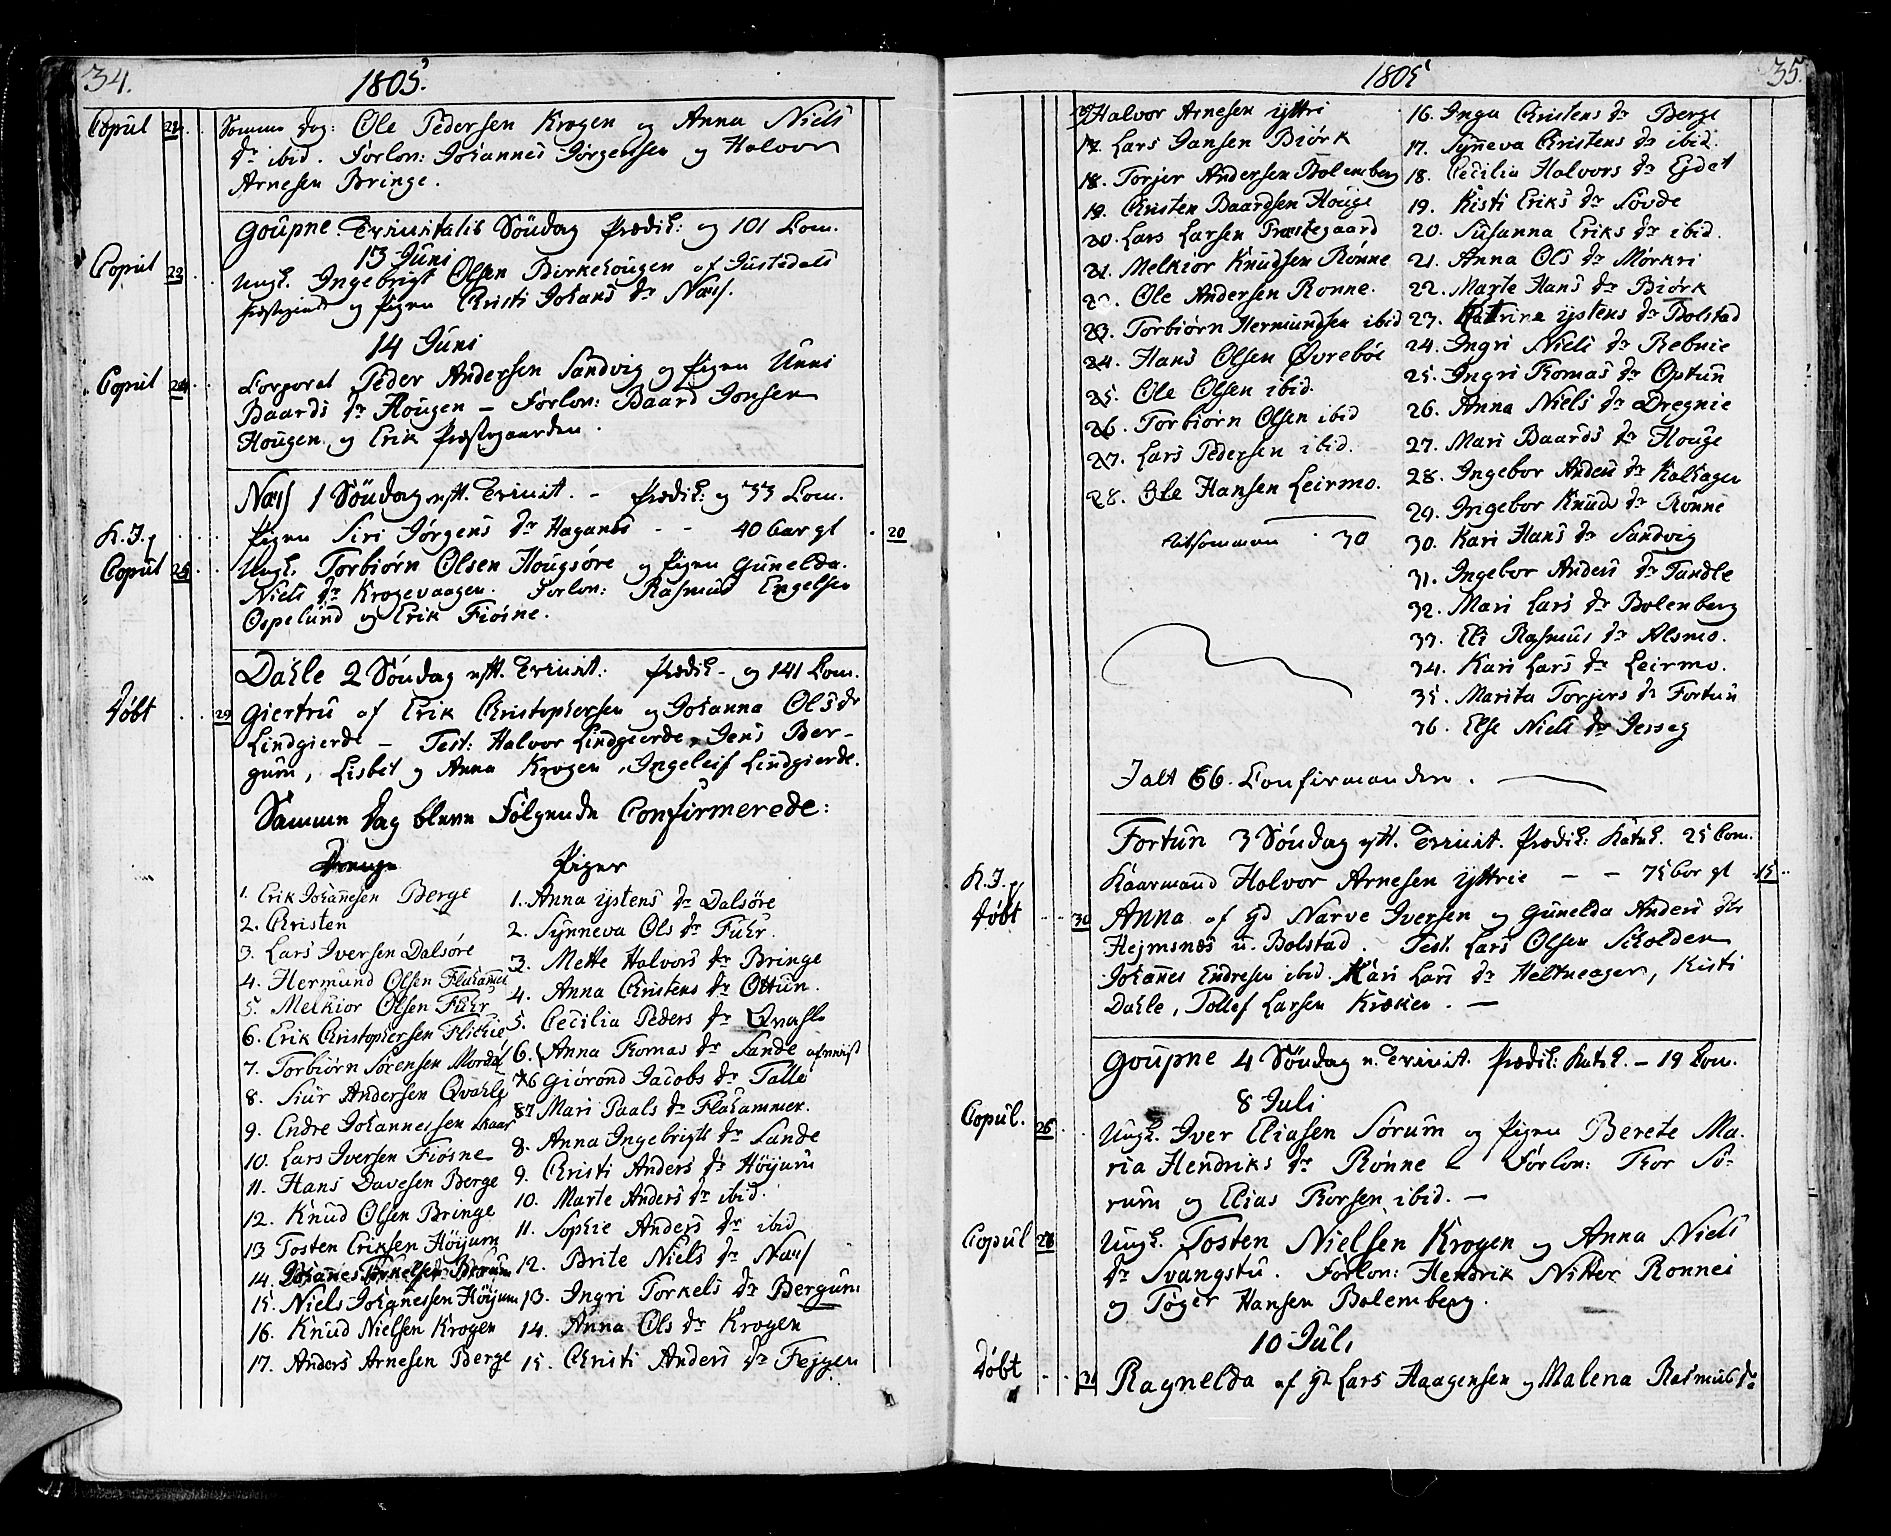 34.
1805.
Copul 22. Samme Dag: Ole Pedersen Krogen og Anna Niels
dr ibid. Forlov: Johannes Jørgensen og Halvor
Arnesen Bringe.
Goupne Trinitatis Söndag Prædik: og 101 Com.
13 Juni
Copul 23. Ungk. Ingebrigt Olsen Birkehougen af Justedals
Præstegield og Pigen Christi Johans dr Næss.
14 Juni
Copul 24. Corporal Peder Andersen Sandvig og Pigen Unni
Baards dr Hougen – Forlov: Baard Jonsen
Hougen og Erik Præstegaarden.
Næss 1 Söndag eft. Trinit. – Prædik: og 33 Com.
K.I.p Pigen Siri Jørgens dr Haganes – – 40 bar gl 20
Copul 25. Ungk. Torbiørn Olsen Hougsøre og Pigen Gunelda
Niels dr Krogevaagen. Forlov: Rasmus Engelsen
Ospelund og Erik Fiøsne.
Dahle 2 Söndag eft. Trinit: Prædik – og 141 Com.
Døbt 29 Giertru af Erik Christophersen og Johanna Ols dr
Lindgierde – Test: Halvor Lindgierde, Jens Ber-
gum, Lisbet og Anna Krogen, Ingeleif Lindgierde.
Samme Dag bleve Følgende Confirmerede:
Drenge Piger
1. Erik Johanesen Berge
2. Christen
3. Lars Iversen Dalsøre
4. Hermund Olsen Flahamer
5. Melkior Olsen Fuhr
6. Erik Christophersen Flickie
7. Torbiørn Sørensen Mordal
8. Siur Andersen Qvahle
9. Endre Johannessen Skaar
10. Lars Iversen Fiøsne
11. Hans Davesen Berge
12. Knud Olsen Bringe
13 Tosten Eriksen Høijum
14. Johanes Torkelsen Bergum
15. Niels Johanessen Høijum
16. Knud Nielsen Krogen
17. Anders Arnesen Berge
1. Anna ystens dr Dalsøre
2. Synneva Ols dr Fuhr.
3. Mette Halvors dr Bringe
4. Anna Christens dr Ottun.
5. Cecilia Peders dr Qvahle
6. Anna Thomas dr Sande afvist
76 Giørond Jacobs dr Talle
87 Mari Paals dr Flahammer.
8. Anna Ingebrigts dr Sande
9. Christi Anders dr Höijum
10. Marte Anders dr ibid.
11. Sophie Anders dr ibid
12. Brite Niels dr Næss
13. Ingri Torkels dr Bergum
14. Anna Ols dr Krogen
15. Christi Anders dr Fejgen
1805
35.
Halvor Arnesen yttri
17. Lars Jansen Biørk
18. Torjer Andersen Bolemberg
19. Christen Baardsen Houge
20. Lars Larsen Præstegaard
21. Melkior Knudsen Rønne
22. Ole Andersen Ronne.
23. Torbiørn Hermundsen ibid
24. Hans Olsen Øvrebøe
25. Ole Olsen ibid.
26. Torbiørn Olsen ibid
27. Lars Pedersen ibid.
28. Ole Hansen Leirmo.
tilsammen 30
16. Inga Christens dr Berge
17. Synneva Christens dr ibid.
18. Cecilia Halvors dr Ejdet
19. Kisti Eriks dr Sovde
20. Susanna Eriks dr ibid.
21. Anna Ols dr Mørkri
22. Marte Hans dr Biørk
23. Katrine ystens dr Bolstad
24. Ingri Niels dr Rebnie
25. Ingri Thomas dr Optun
26. Anna Niels dr Dregnie
27. Mari Baards dr Houge
28. Ingebor Anders dr Kalhagen
29. Ingebor Knuds dr Rønne
30. Kari Hans dr Sandvig
31. Ingebor Anders dr Tandle
32. Mari Lars dr Bolenberg
33. Eli Rasmus dr Alsmo.
34. Kari Lars dr Leirmo.
35. Marita Torjers dr Fortun
36. Else Niels dr Jesseg
I alt 66. Confirmanden.
Fortun 3 Söndag eft. Trinit. Prædik: Katek. 25 Com.
K.I.p Kaarmand Halvor Arnesen yttrie – – 75 bar gl 15
Døbt 30 Anna af Gd Narve Iversen og Gunelda Anders dtr
Hejmsnæs u. Bolstad. Test. Lars Olsen Skolden
Johanes Endresen ibid. Kari Lars dr Heltneager, Kisti
Dahle, Tollef Larsen Kræken. –
Goupne 4 Söndag e. Trinit. Prædik: Katek. – 19 Com.
8 Juli
Copul. 26 Ungk. Iver Eliasen Sørum og Pigen Berete Ma-
ria Hendriks dr Rønne – Forlov: Thor Sö-
rum og Elias Thorsen ibid. –
Copul 28 Ungk. Tosten Nielsen Krogen og Anna Niels
dr Svangstu. Forlov: Hendrik Nitter Ronnei
og Tøger Hansen Bolemberg.
10 Juli
Døbt 31 Ragnelda af Gd Lars Haagensen og Malena Rasmus dr